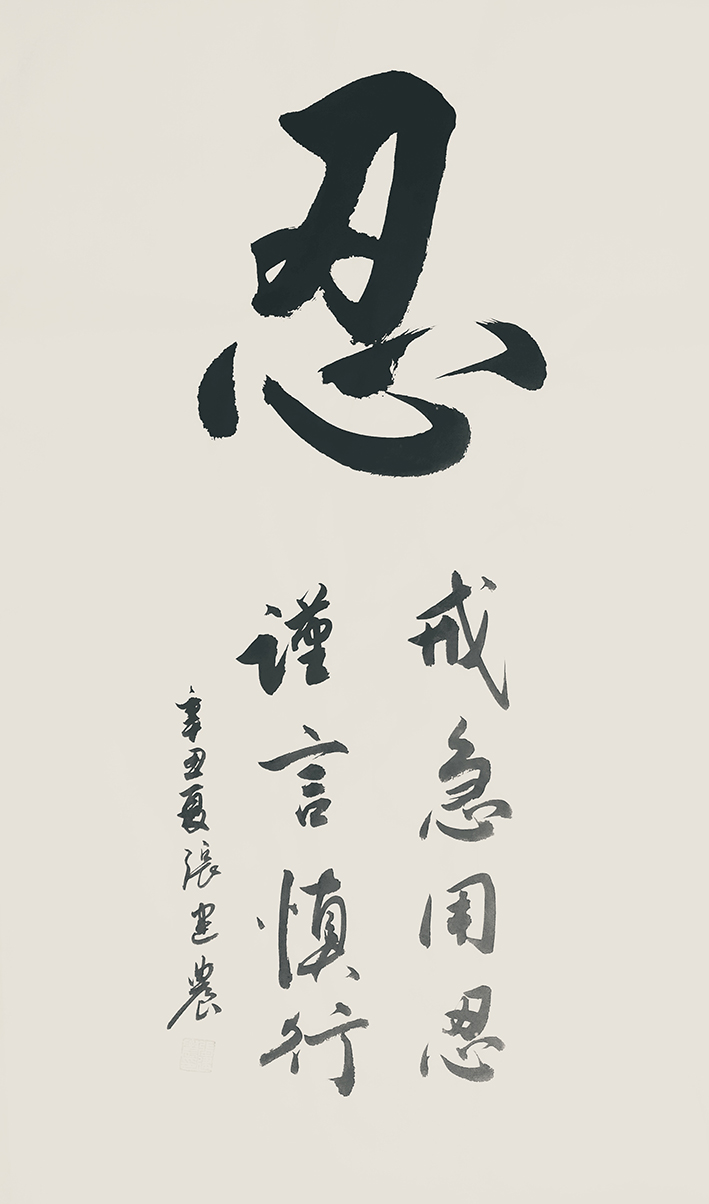 忍
戒急用忍
谨言慎行
辛丑夏張建農